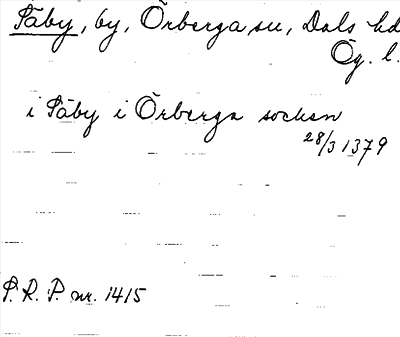 Påby, by, Örberga sn, Dals hd
Ög. l.
i Påby i Örberga socken
28/3 1379
P. R. P. nr. 1415